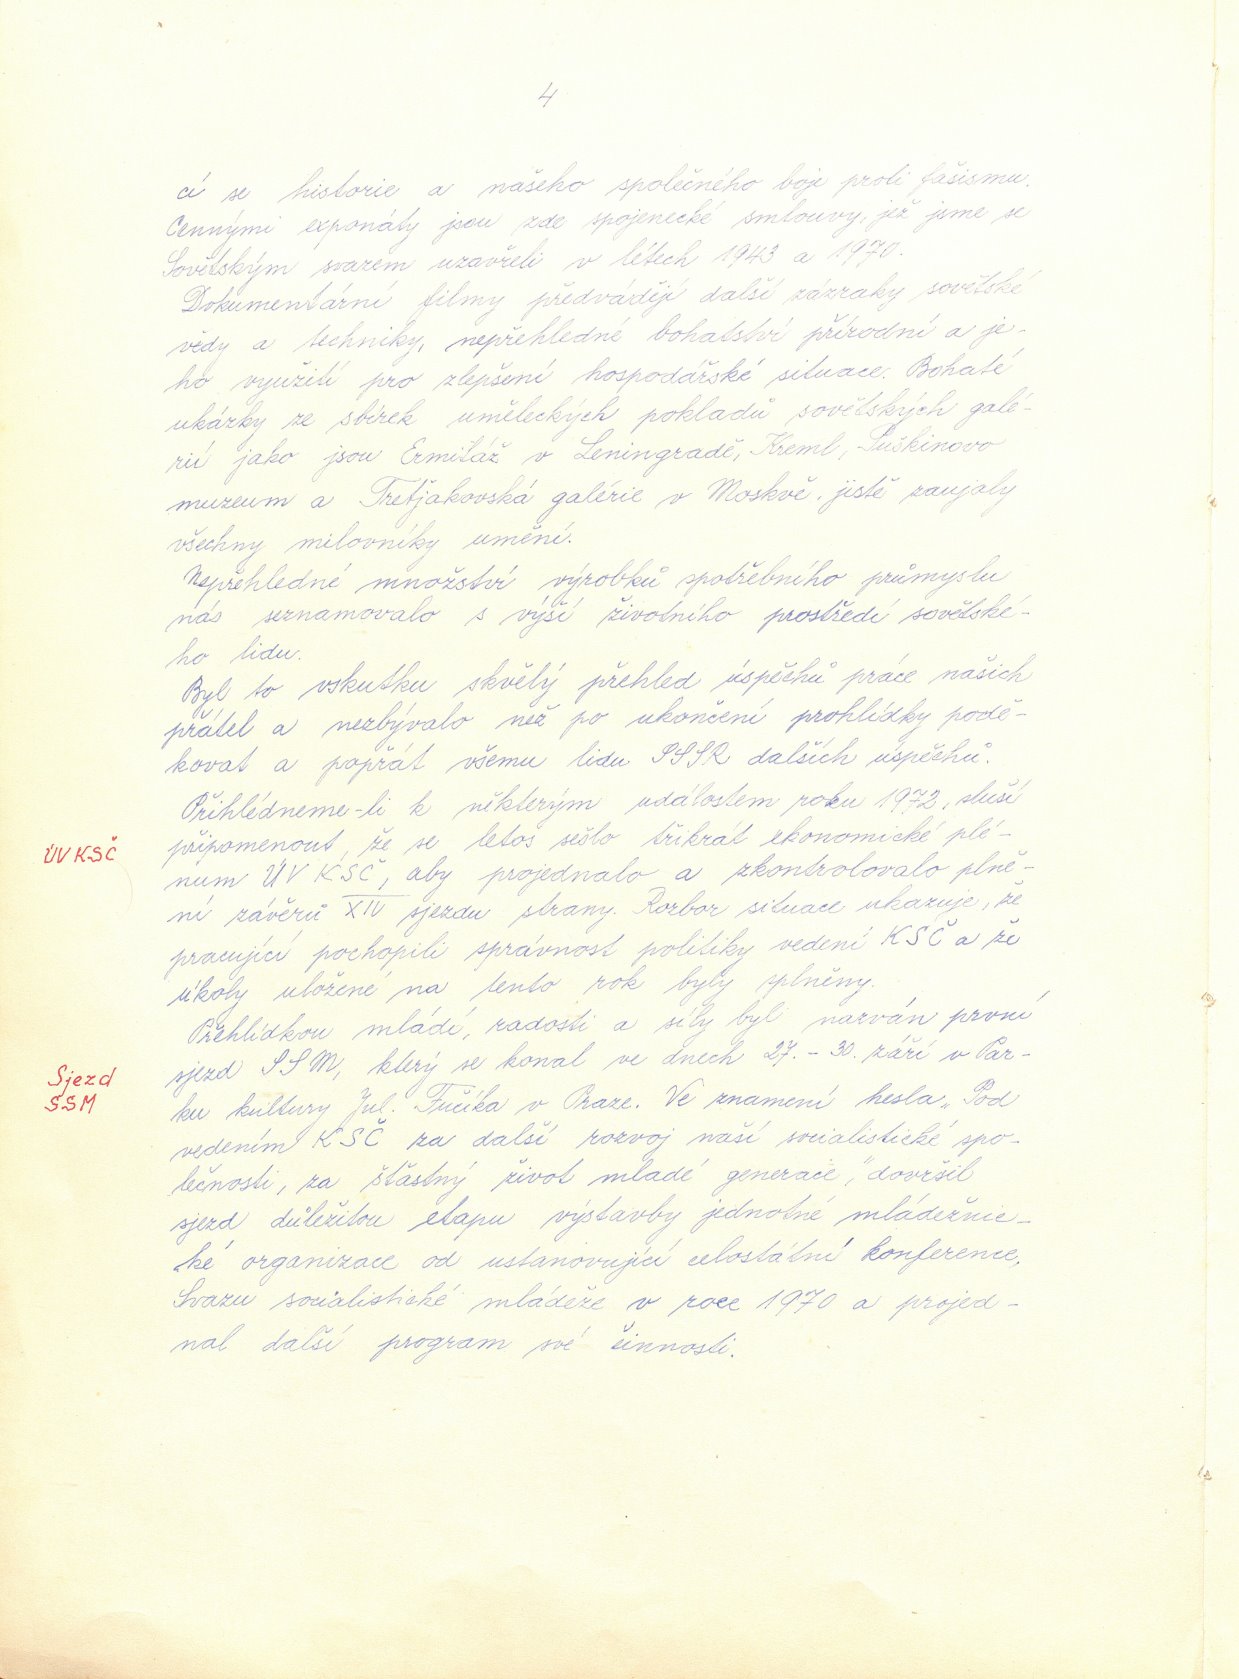 4
cí se historie a našeho společného boje proti fašismu.
Cennými exponáty jsou zde spojenecké smlouvy, jež jsme se
Sovětským svazem uzavřeli v létech 1943 a 1970.
Dokumentární filmy předvádějí další zázraky sovětské
vědy a techniky, nepřehledné bohatství přírodní a je-
ho využití pro zlepšení hospodářské situace. Bohaté
ukázky ze sbírek uměleckých pokladů sovětských galé-
rií jako jsou Ermitáž v Leningradě, Kreml, Puškinovo
muzeum a Treťjakovská galérie v Moskvě, jistě zaujaly
všechny milovníky umění.
Nepřehledné množství výrobků spotřebního průmyslu
nás seznamovalo s výší životního prostředí sovětské-
ho lidu.
Byl to vskutku skvělý přehled úspěchů práce našich
přátel a nezbývalo než po ukončení prohlídky podě-
kovat a popřát všemu lidu SSSR dalších úspěchů.
Přihlédneme-li k některým událostem roku 1972, sluší
připomenout, že se letos sešlo třikrát ekonomické plé-
ÚV KSČ
num ÚV KSČ, aby projednalo a zkontrolovalo plně-
ní závěrů XIV sjezdu strany. Rozbor situace ukazuje, že
pracující pochopili správnost politiky vedení KSČ a že
úkoly uložené na tento rok byly splněny.
Přehlídkou mládí, radosti a síly byl nazván první
Sjezd
SSM
sjezd SSM, který se konal ve dnech 27. - 30. září v Par-
ku kultury Jul. Fučíka v Praze. Ve znamení hesla „Pod
vedením KSČ za další rozvoj naší socialistické spo-
lečnosti, za šťastný život mladé generace", dovršil
sjezd důležitou etapu výstavby jednotné mládežnic-
ké organizace od ustanovující celostátní konference,
Svazu socialistické mládeže v roce 1970 a projed-
nal další program své činnosti.